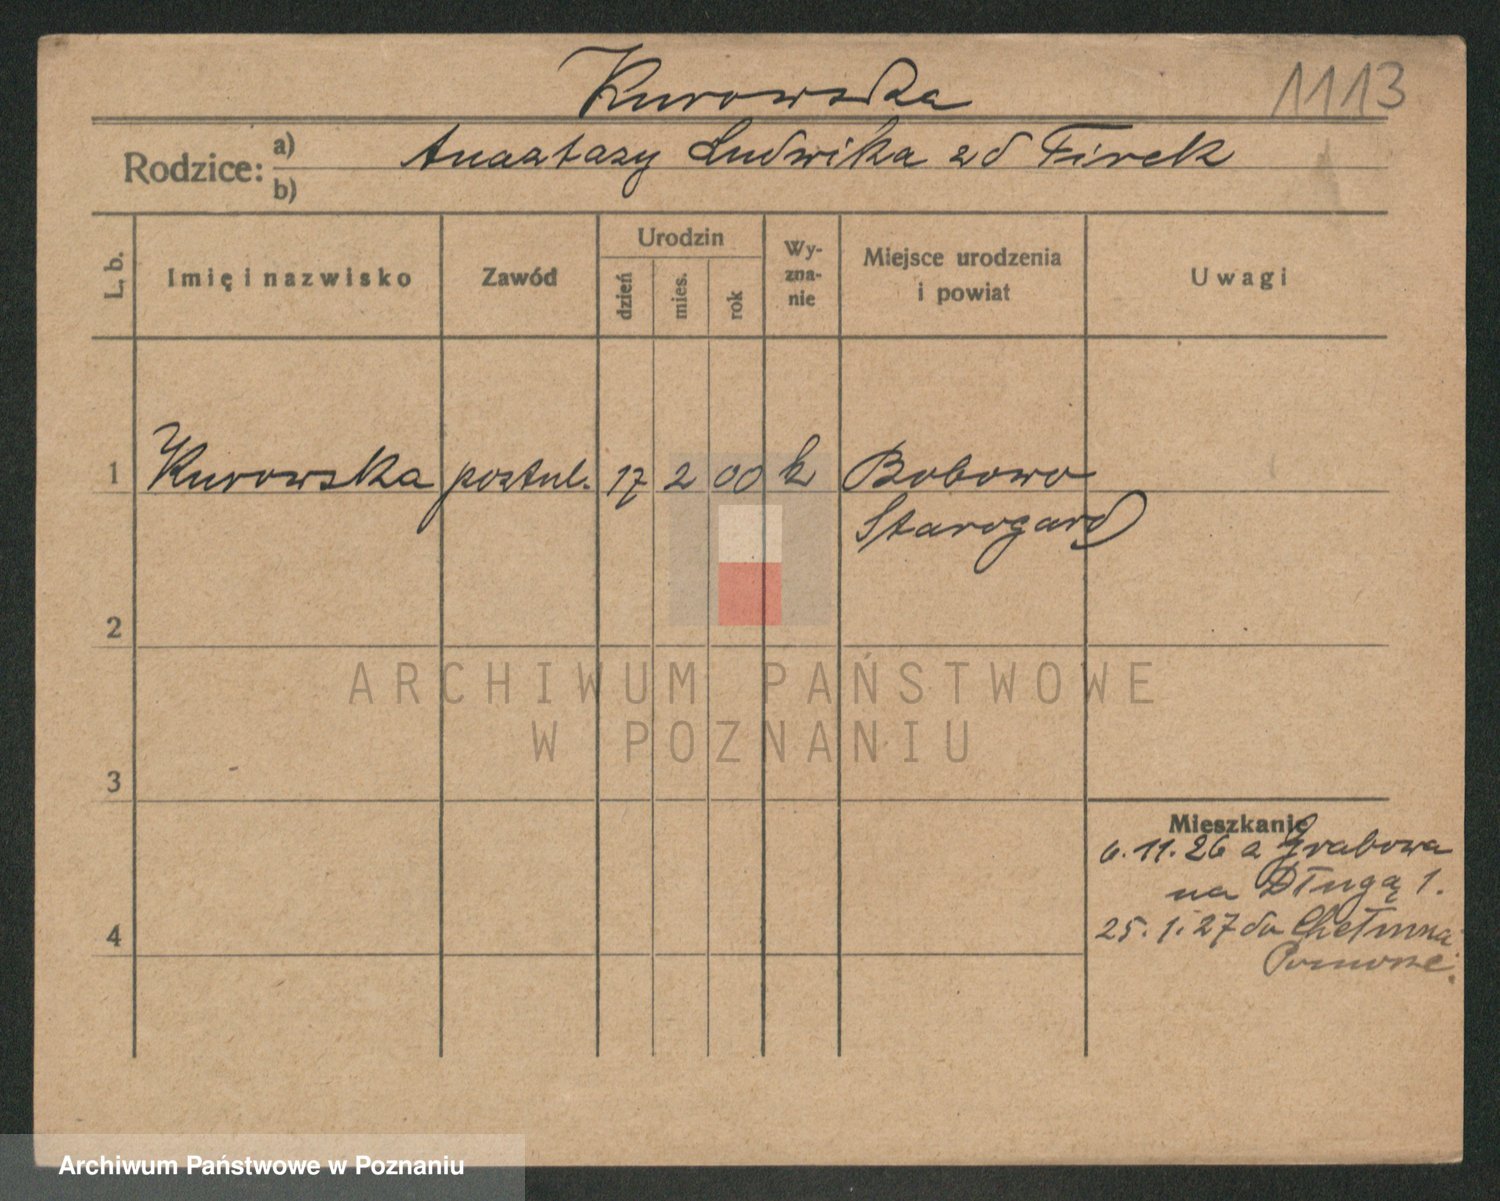 Kurowska 1113
Rodzice: a) b) Anastazy Ludwika zd Firek
L. b. Imię i nazwisko Zawód Urodzin dzień mies. rok Wy-zna-nie Miejsce urodzenia i powiat Uwagi
1 Kurowska postul. 17 2 00 k Bobowo
Starogard
2
3
Mieszkanie
6.11.26 z Grabowa
na Długą 1.
4 25.1.27 do Chełmna
Pomorze.
ARCHIWUM PAŃSTWOWE
W POZNANIU
Archiwum Państwowe w Poznaniu